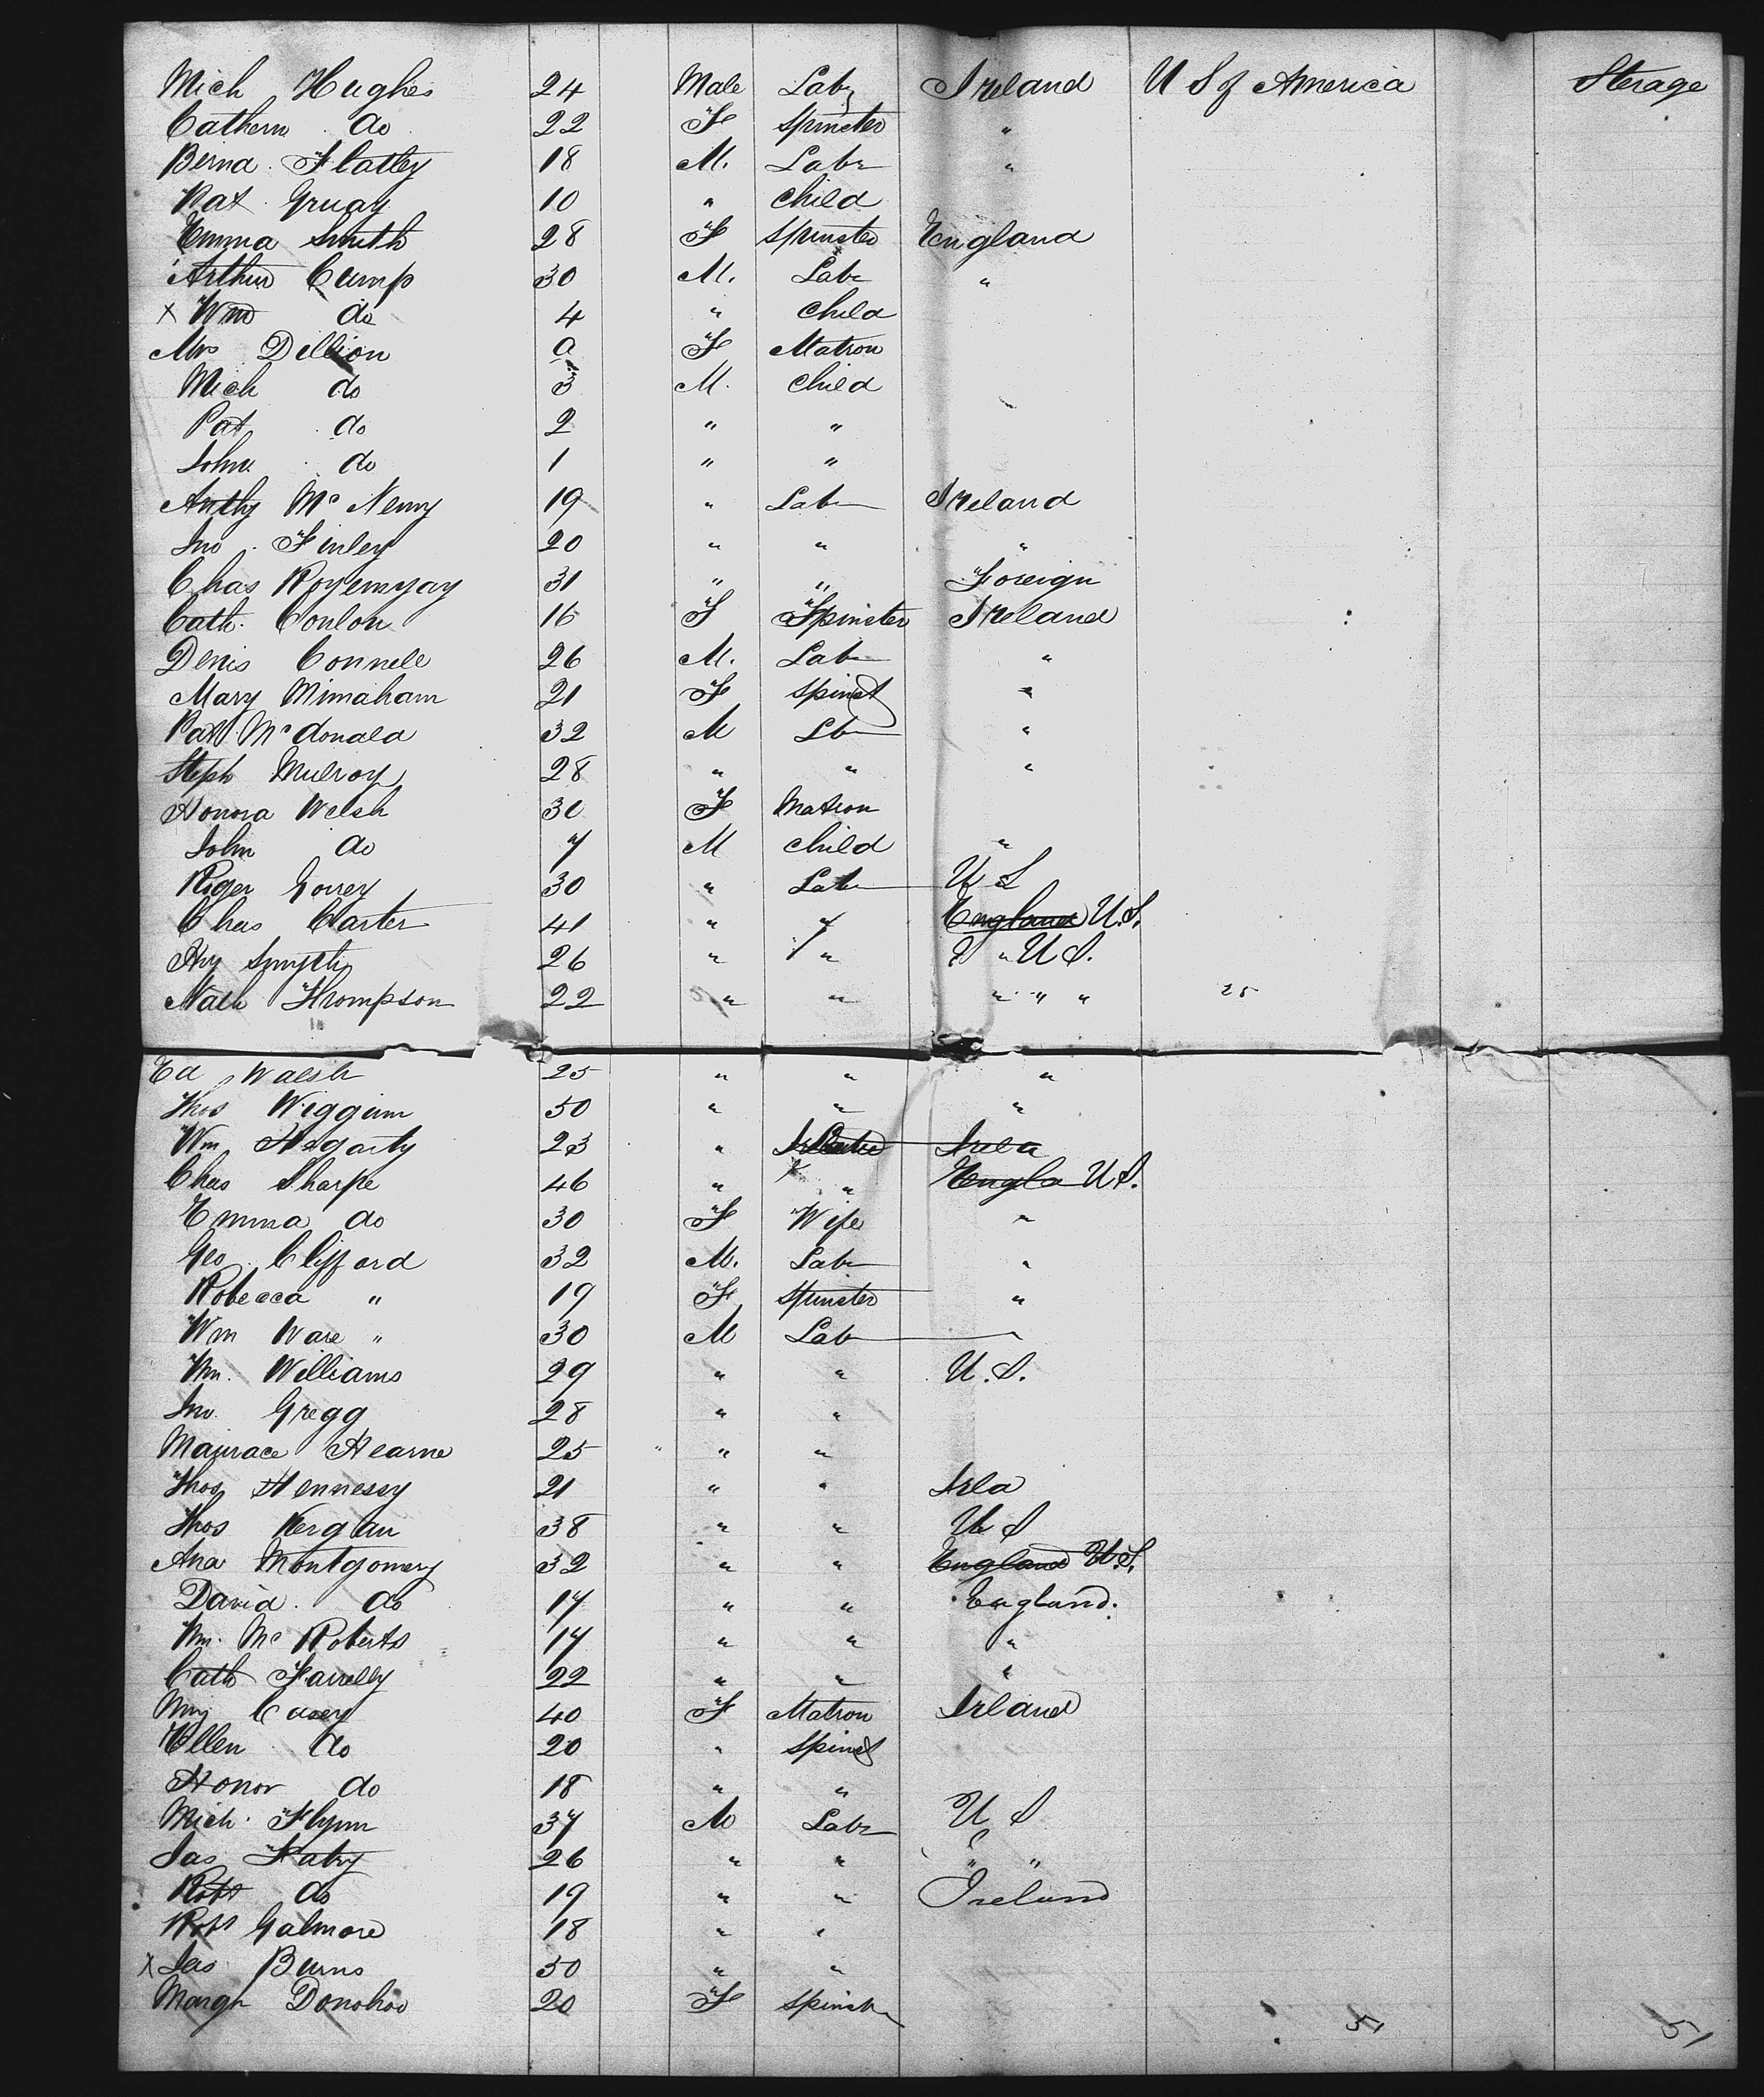 Mich Hughes 24 Male Labr Ireland U S of America Sterage
Cathern do 22 F Spinster "
Bernd. Flatley 18 M. Labr "
Pat Gruay 10 " Child
Emma Smith 28 F Spinster England
Arthur Camp 30 M. Labr "
x Wm do 4 " Child
Mrs Dillion a F Matron
Mich do 3 M. Child
Pat do 2 " "
John do 1 " "
Anthy Mc Nemy 19 " Labr Ireland
Jno. Finley 20 " " "
Chas 31 " " Foreign
Cath. Conlon 16 F Spinster Ireland
Denis Connell 26 M. Labr "
Mary Mimaham 21 F Spinst "
Pat Mc donald 32 M Lbr "
Steph Mulroy 28 " " "
Honora Welsh 30 F Matron
John do 7 M Child "
Roger Gorrey 30 " Labr U S
Chas Carter 41 " " England U.S.
Hy Smyth 26 " " " U S.
Nath Thompson 22 " " " " " 25
Ed Walsh 25 " " "
Thos Wiggim 50 " " "
Wm Hegarty 23 " Irela
Chas Sharpe 46 " " Engla U S.
Emma do 30 F Wife "
Geo. Clifford 32 M. Labr "
Robecca " 19 F Spinster "
Wm Ware " 30 M Labr
Wm. Williams 29 " " U.S.
Jno. Gregg 28 " "
Maurace Hearne 25 " "
Thos Hennessy 21 " " Irla
Thos Kergan 38 " " U S
Ana Montgomery 32 " " England U.S.
David. do 14 " " England.
Wm. Mc Roberts 14 " " "
Cath Farrelly 22 " " "
My Casey 40 F Matron Irland
Ellen do 20 " Spinst
Honor do 18 " "
Mich. Flynn 37 M Labr U S
Jas 26 " " " "
Robt do 19 " " Ireland
Robt Galmore 18 " "
x Jas. Burns 50 " "
Margt Donohoo 20 F Spinstr
51 51